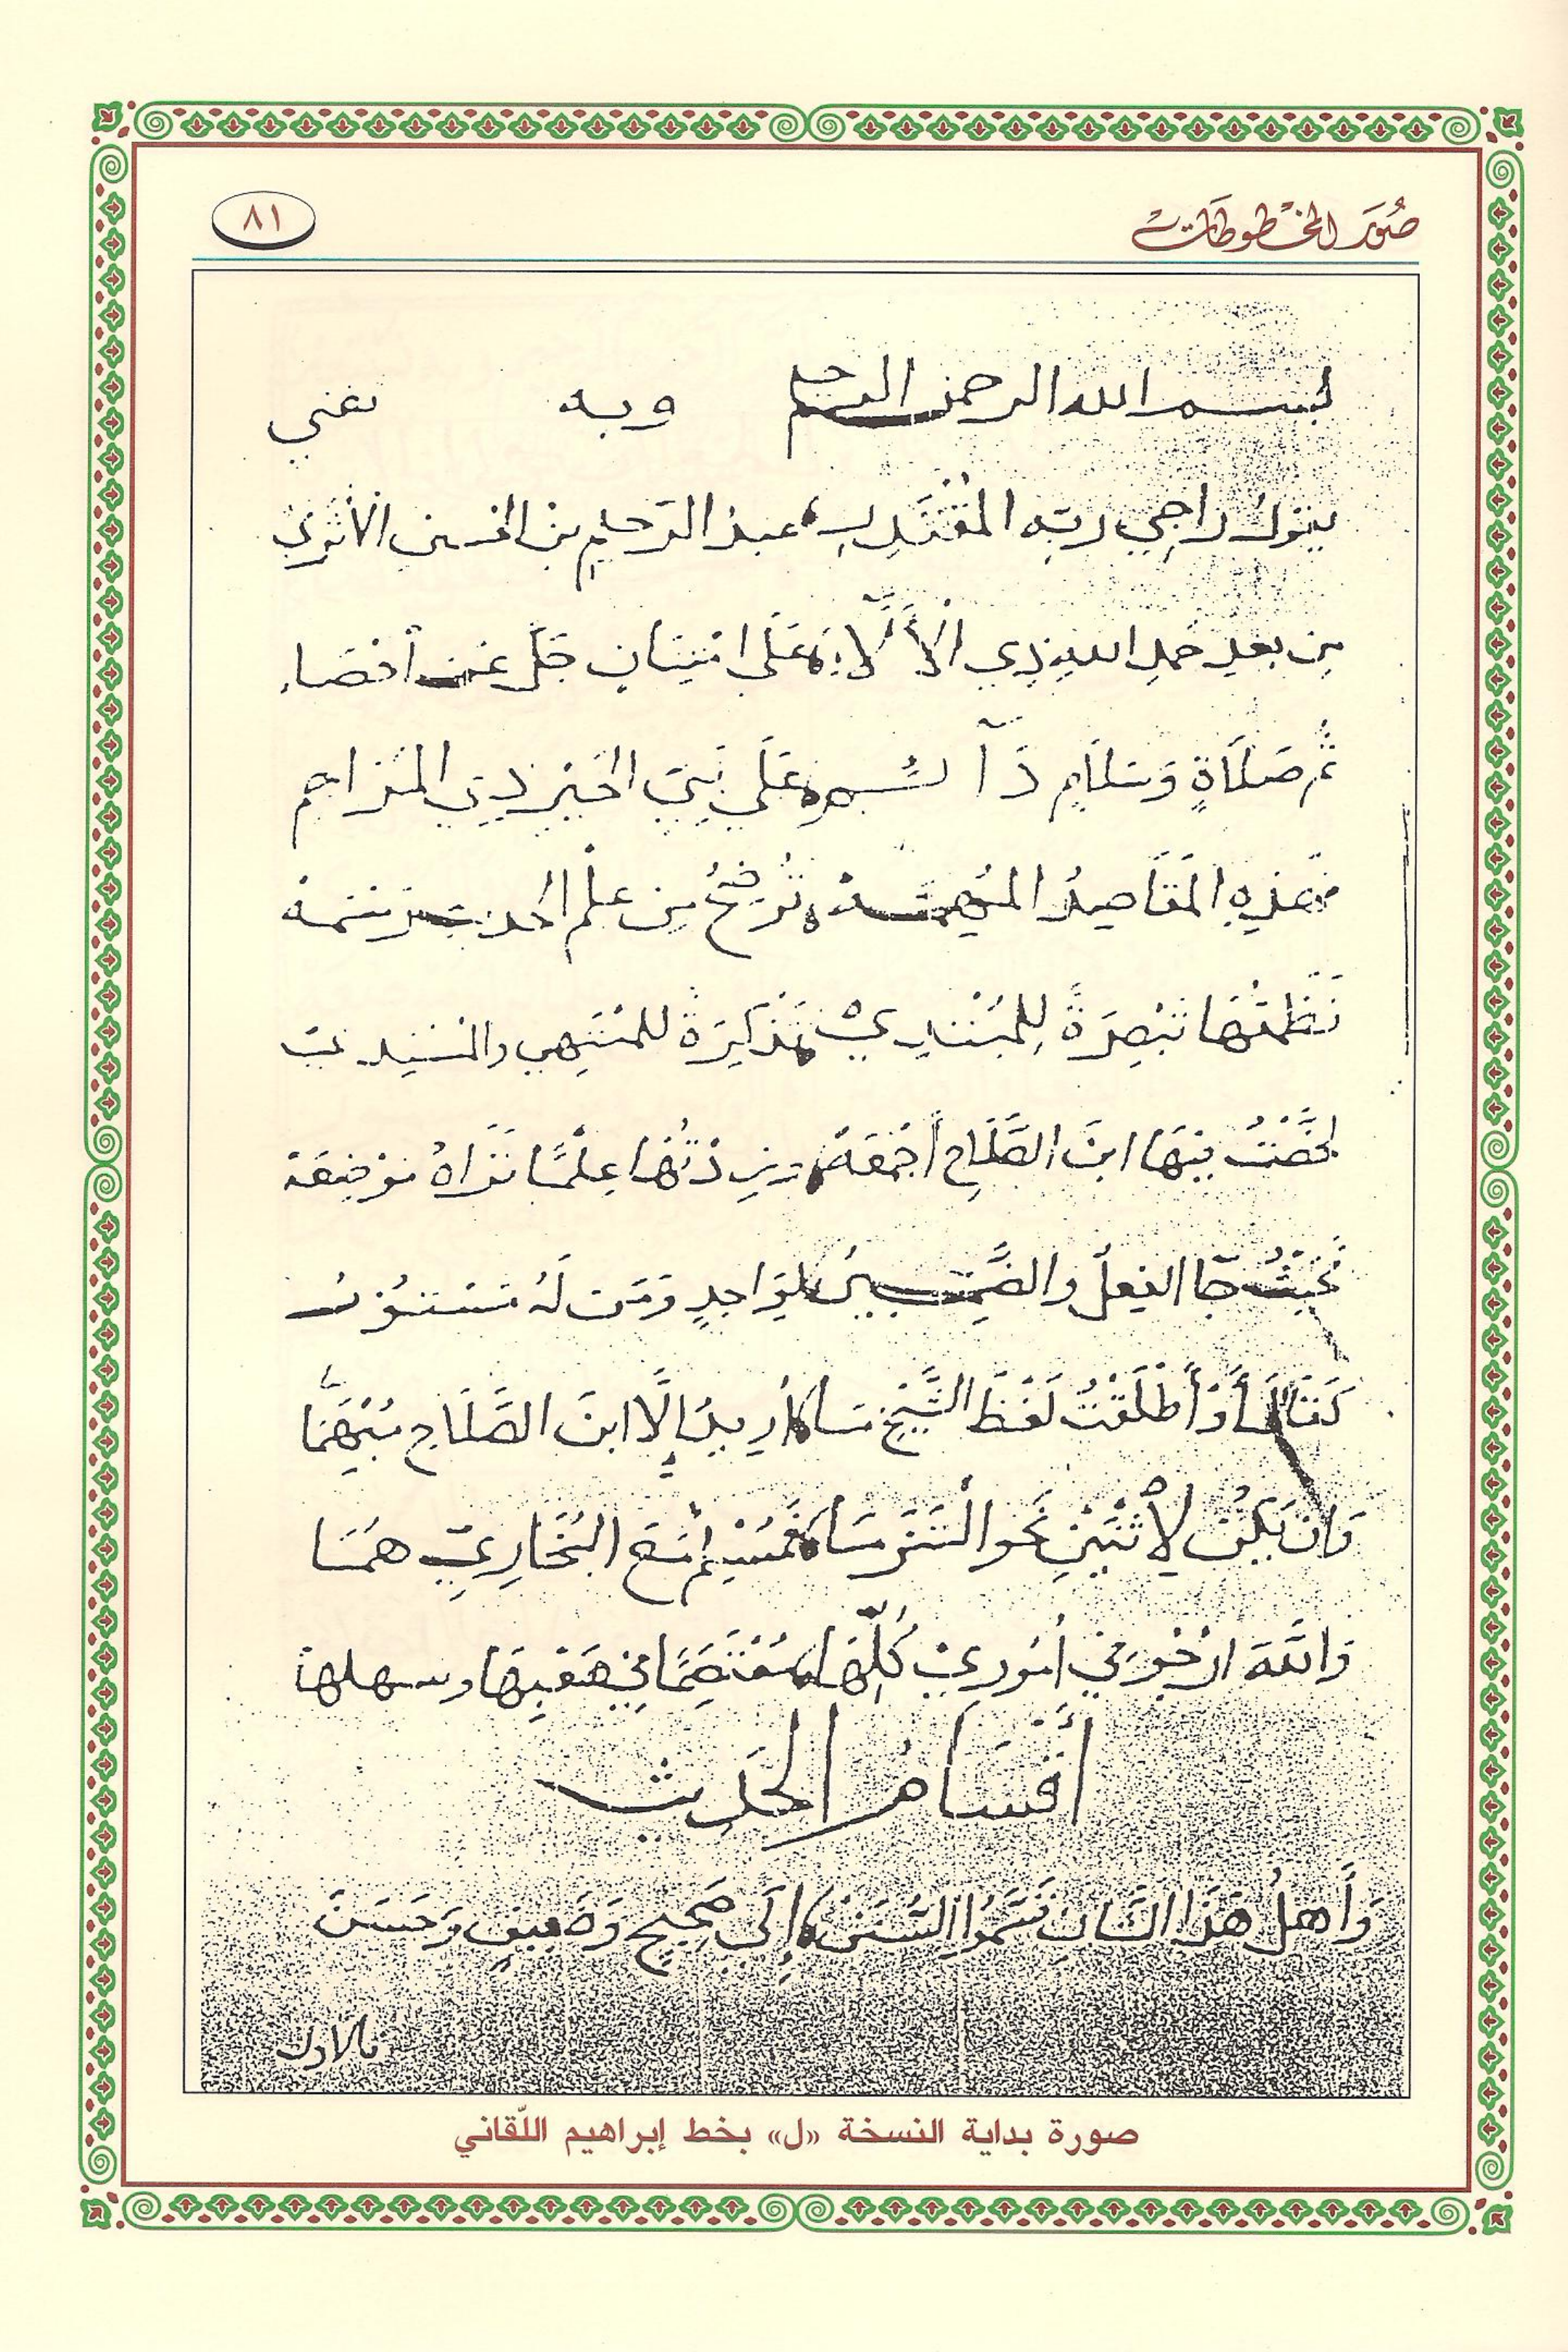 صُوَر المخْطوطَات
٨١
بسم الله الرحمن الرحيم وبه ثقتي
يقول راجي ربه المُقْتَدِرِ عبد الرَّحيمِ بن الحسين الأثَري
مِن بعدِ حَمدِ اللهِ ذِي الْآلَاءِ عَلَى امْتِنَانٍ جَلَّ عَن احْصَاءِ
ثُمَّ صَلَاةٍ وَسَلَامٍ دَآئِمِ عَلَى نَبِيِّ الخَيْرِ ذِي المَرَاحِمِ
فهَذِهِ المَقَاصِدُ المُهِمَّه تُوَضِّحُ مِن عِلْمِ الحديث رَسْمَهْ
نَظَمْتُهَا تَبْصِرَةً لِلمُبْتَدِي تَذْكِرَةً للمُنْتَهِي والمُسْنِدِ
لَخَّصْتُ فِيهَا ابنَ الصَّلَاحِ أَجْمَعَهْ وزِدْتُهَا عِلْمًا تَرَاهُ مَوْضِعَهْ
فَحَيْثُ جَا الفِعلُ والضَّمِيرُ لِوَاحِدٍ وَمَن لَهُ مَسْتُورُ
كَقَالَ أَوْ أَطْلَقْتُ لَفْظَ الشَّيْخِ مَا أُرِيدُ إِلَّا ابنَ الصَّلَاحِ مُبْهَمَا
وَان يَكُنْ لِاثْنَيْنِ نَحو الْتَزَمَا فَمُسْلِمٌ مَعَ البُخَارِيِّ هُمَا
وَاللَّهَ ارْجُو فِي أُمُورِي كُلِّهَا مُعْتَصَمًا فِي صَعْبِهَا وسهلها
أَقْسَامُ الحَدِيث
وَأَهلُ هَذَا الشَّانِ قَسَّمُوا السُّنَنْ إِلَى صَحِيحٍ وَضَعِيفٍ وَحَسَنْ
فالاول
صورة بداية النسخة «ل» بخط إبراهيم اللّقاني